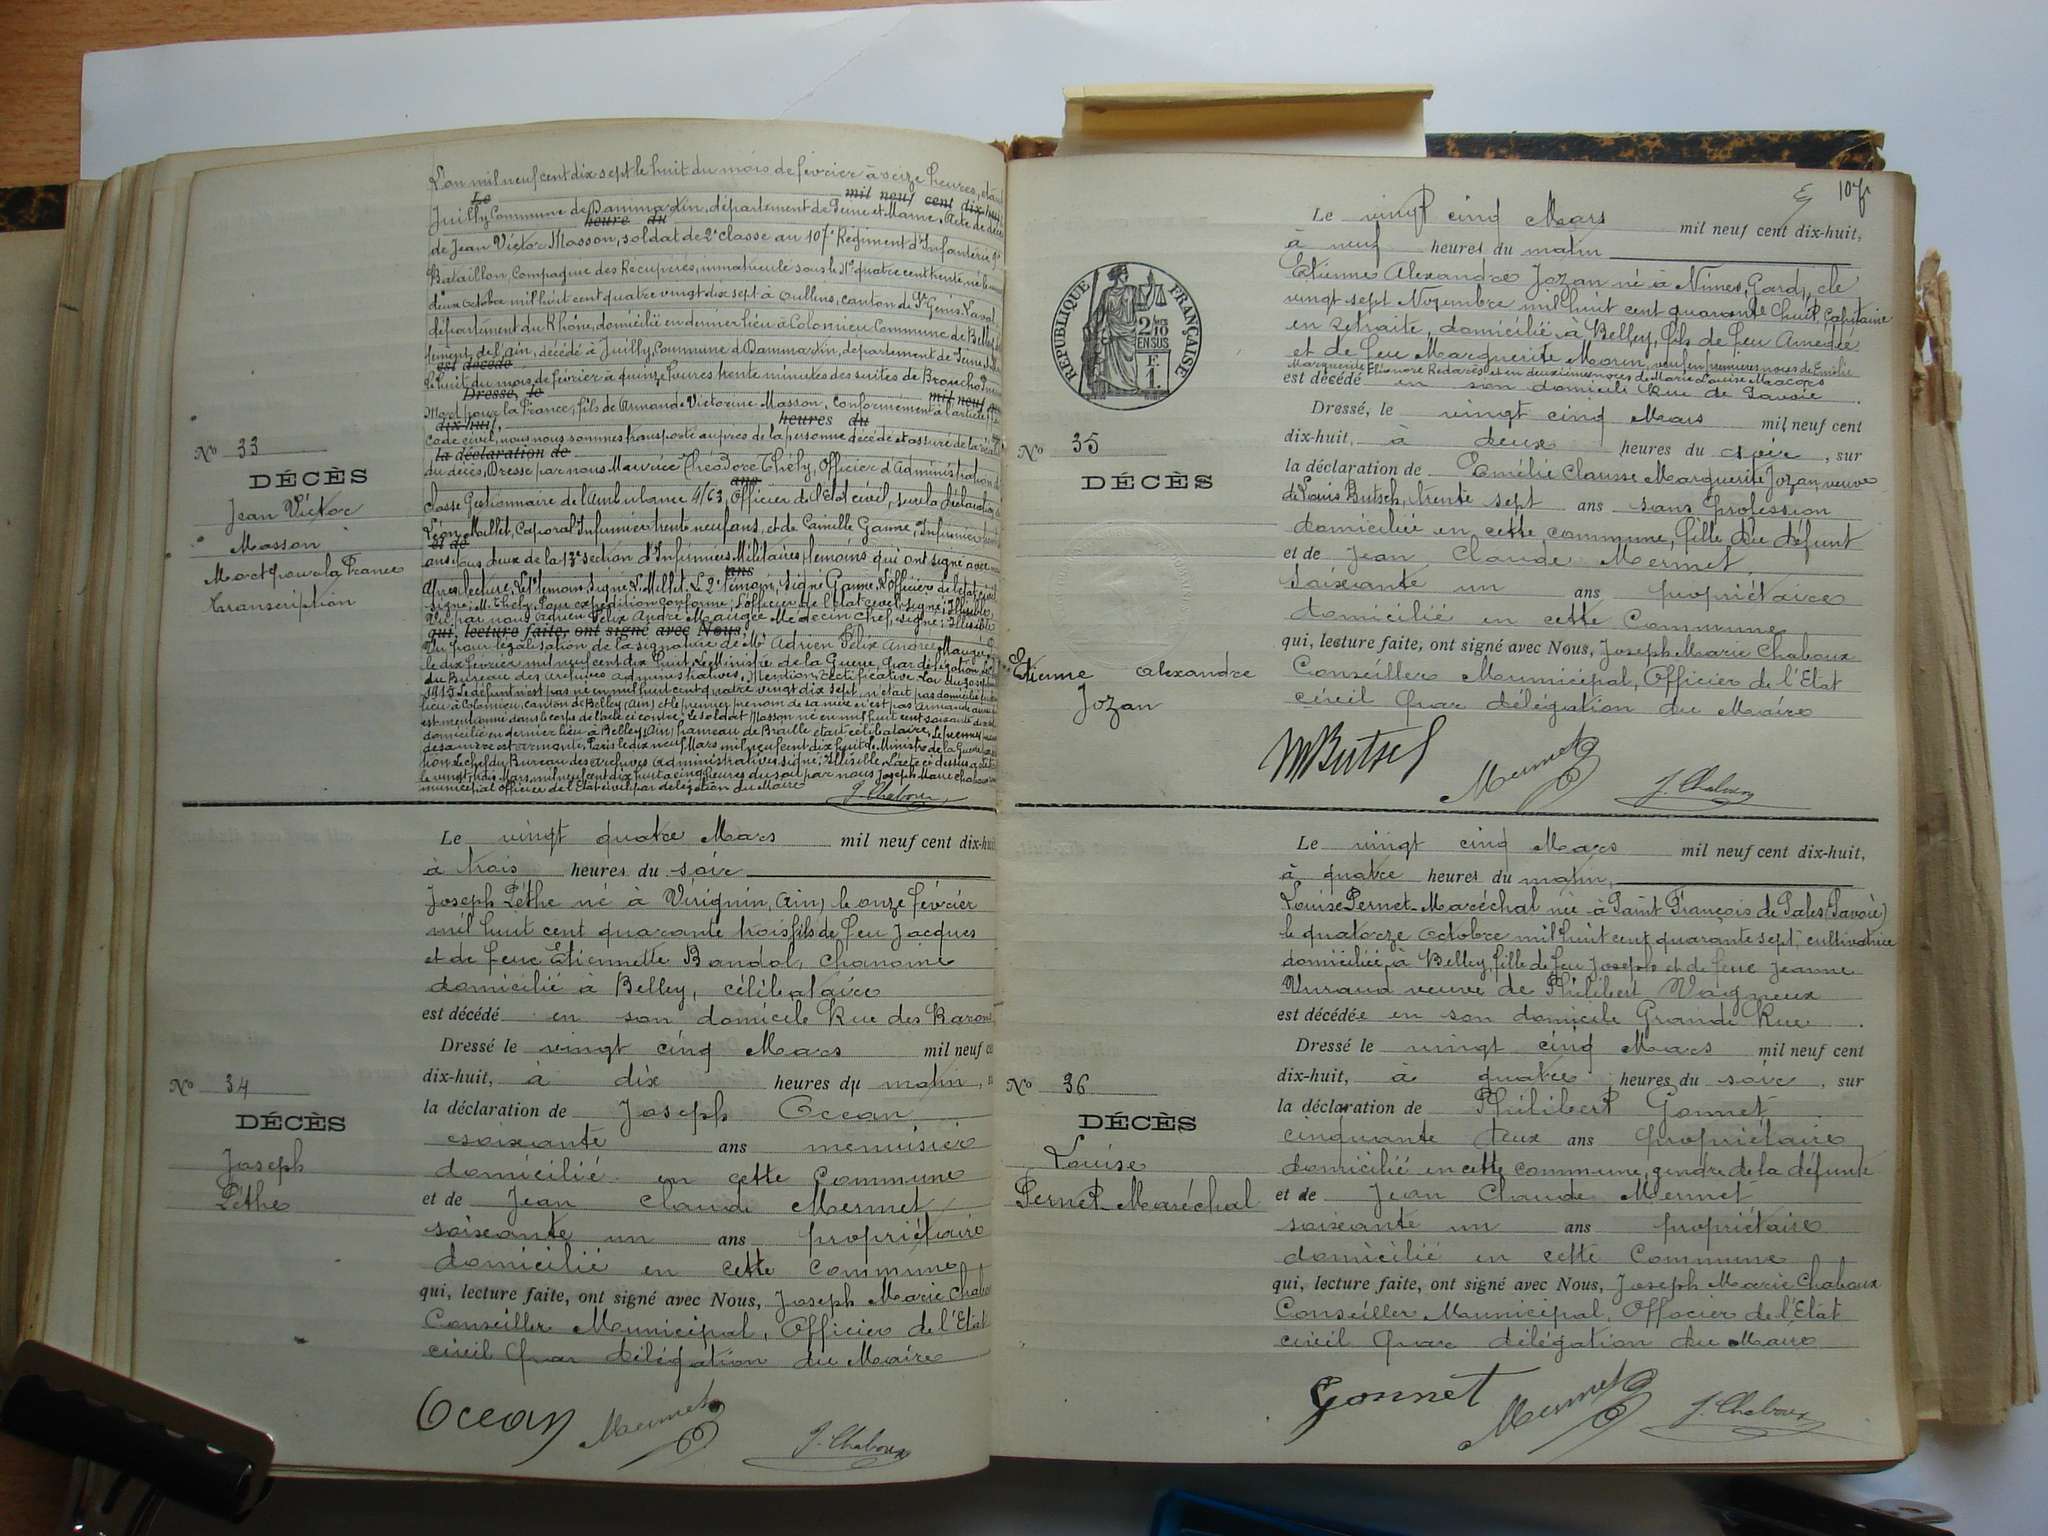 L'an mil neuf cent dix sept le huit du mois de février à seize heures, étant
Le mil neuf cent dix-huit
Juilly Commune de Dammartin, département de Seine et Marne. Acte de décès
heure du
de Jean Victor Masson, soldat de 2e classe au 107e Régiment d'Infanterie
Bataillon, Compagnie des Récupérés, immatriculé sous le No quatre cent trente, né le
deux Octobre mil huit cent quatre vingt dix sept à Oullins, canton de St Genis-Laval
département du Rhône, domicilié en dernier lieu à Colomieu Commune de Belley
tement de l'ain, décédé à Juilly, Commune de Dammartin, département de Seine et
est décédé
le huit du mois de février à quinze heures trente minutes des suites de Broncho
Dressé, le mil neuf
Mort pour la France, fils de Armande Victorine Masson. Conformément à l'article
dix-huit, heures du
Code civil, nous nous sommes transporté auprès de la personne décédé et assuré de la réalité
la déclaration de
du décès, Dressé par nous Maurice Théodore Thély, Officier d'Administration
ans
classe Gestionnaire de l'Ambulance 4/63, Officier de l'Etat civil, sur la déclaration de
Léon Millet, Caporal Infirmier trente neuf ans, et de Camille Ganne, Infirmier
et de
ans tous deux de la 13e section d'Infirmiers Militaires, témoins qui ont signé avec
ans
après lecture. Le 1er témoin signé L. Millet. Le 2e témoin, signé Ganne. L'Officier de l'état civil
signé: M. Thély. Pour expédition conforme, l'officier de l'état civil signé: Illisible
Vu par nous Adrien Félix André Maugée Médecin Chef, signé: Illisible
qui, lecture faite, ont signé avec Nous
Vu pour légalisation de la signature de Mr Adrien Félix André Maugée
le dix février mil neuf cent dix huit. Le Ministre de la Guerre, par délégation
du Bureau des archives administratives. Mention rectificative Loi du
1915. Le défunt n'est pas né en mil huit cent quatre vingt dix sept, n'était pas domicilié
lieu à Colomieu, canton de Belley (Ain) et le premier prénom de sa mère n'est pas Armande
est mentionné dans le corps de l'acte ci contre; le soldat Masson né en mil huit cent soixante
domicilié en dernier lieu à Belley (Ain) hameau de Braille était célibataire. Le premier
de sa mère est Armante. Paris le dix neuf Mars mil neuf cent dix huit. Le Ministre de la Guerre
tion Le chef du Bureau des archives administratives, signé: Illisible. L'acte ci dessus a été
le vingt trois Mars, mil neuf cent dix huit à cinq heures du soir par nous Joseph Marie Chaboux
municipal officier de l'Etat civil par délégation du Maire
J. Chaboux
No 33
DÉCÈS
Jean Victor
Masson
Mort pour la France
transcription
Le vingt quatre Mars mil neuf cent dix-huit
à trois heures du soir
Joseph Péthe né à Virignin, (Ain) le onze février
mil huit cent quarante trois, fils de feu Jacques
et de feue Etiennette Bandol, chanoine
domicilié à Belley, célibataire
est décédé en son domicile Rue des Barons
Dressé le vingt cinq Mars mil neuf cent
dix-huit, à dix heures du matin, sur
la déclaration de Joseph Océan
soixante ans menuisier
domicilié en cette commune
et de Jean Claude Mermet
soixante un ans propriétaire
domicilié en cette commune
qui, lecture faite, ont signé avec Nous, Joseph Marie Chaboux
Conseiller Municipal, Officier de l'Etat
civil par délégation du Maire
No 34
DÉCÈS
Joseph
Péthe
Ocean Mermet J. Chaboux
107
Le vingt cinq Mars mil neuf cent dix-huit,
à neuf heures du matin
Etienne Alexandre Jozan né à Nîmes, Gard, le
vingt sept Novembre mil huit cent quarante huit, Capitaine
en retraite, domicilié à Belley, fils de feu Amédée
et de feu Marguerite Morin, veuf en premières noces de Emélie
Marguerite Eléonore Redarès et en deuxièmes noces de Marie Louise Macors
est décédé en son domicile Rue de Savoie
Dressé, le vingt cinq Mars mil neuf cent
dix-huit, à deux heures du soir, sur
la déclaration de Emélie Clausse Marguerite Jozan, veuve
de Louis Butsch, trente sept ans sans profession
domiciliée en cette commune, fille du défunt
et de Jean Claude Mermet
soixante un ans propriétaire
domicilié en cette Commune
qui, lecture faite, ont signé avec Nous, Joseph Marie Chaboux
Conseiller Municipal, Officier de l'Etat
civil par délégation du Maire
RÉPUBLIQUE FRANÇAISE
2/10 EN SUS
1 F.
No 35
DÉCÈS
Etienne Alexandre
Jozan
MButsch Mermet J. Chaboux
Le vingt cinq Mars mil neuf cent dix-huit,
à quatre heures du matin,
Louise Pernet-Maréchal née à Saint François de Sales (Savoie)
le quatorze Octobre mil huit cent quarante sept, cultivatrice
domiciliée à Belley, fille de feu Joseph et de feue Jeanne
veuve de Philibert Vagneux
est décédée en son domicile Grande Rue
Dressé le vingt cinq Mars mil neuf cent
dix-huit, à quatre heures du soir, sur
la déclaration de Philibert Gonnet
cinquante deux ans propriétaire
domicilié en cette commune, gendre de la défunte
et de Jean Claude Mermet
soixante un ans propriétaire
domicilié en cette Commune
qui, lecture faite, ont signé avec Nous, Joseph Marie Chaboux
Conseiller Municipal, Officier de l'Etat
civil par délégation du Maire
No 36
DÉCÈS
Louise
Pernet-Maréchal
Gonnet Mermet J. Chaboux